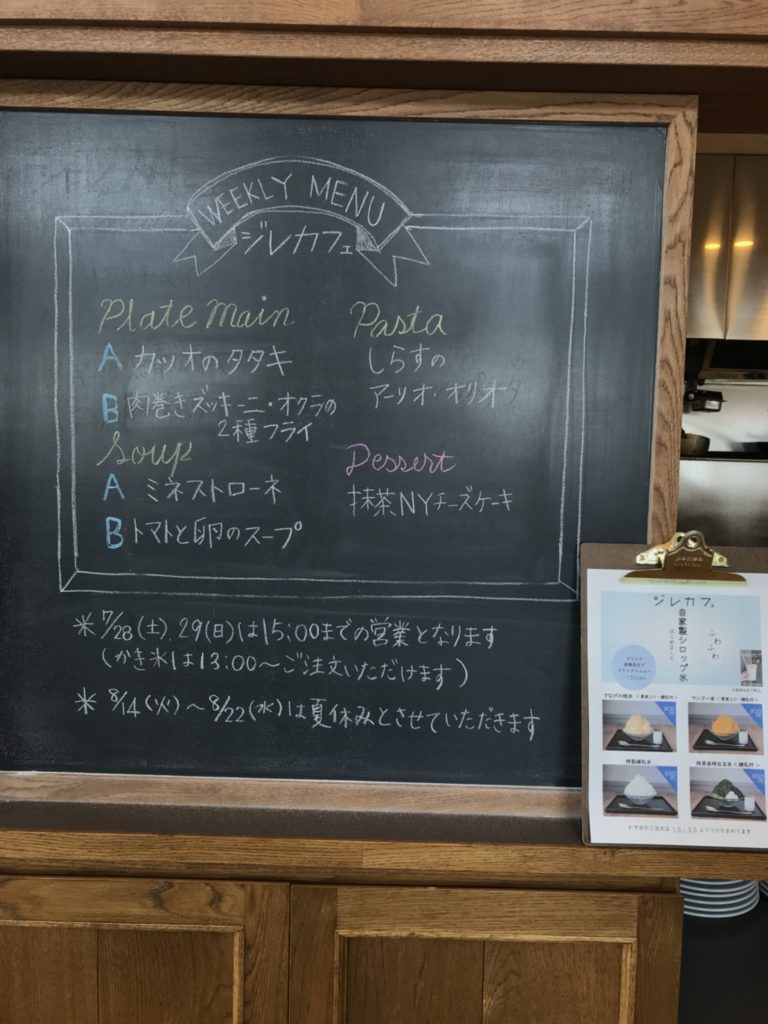 WEEKLY MENU
ジレカフェ
Plate main
A カツオのタタキ
B 肉巻きズッキーニ・オクラの
2種フライ
Soup
A ミネストローネ
B トマトと卵のスープ
Pasta
しらすの
アーリオ・オリオ
Dessert
抹茶NYチーズケーキ
※ 7/28(土)、29(日)は15:00までの営業となります
(かき氷は13:00〜ご注文いただけます)
※ 8/14(火)〜8/22(水)は夏休みとさせていただきます
ジレカフェ
自家製シロップ氷
ふわふわ
はじめました
特製練乳氷
抹茶金時白玉氷<練乳付>
かき氷のご注文は 13:30 よりうけたまわります